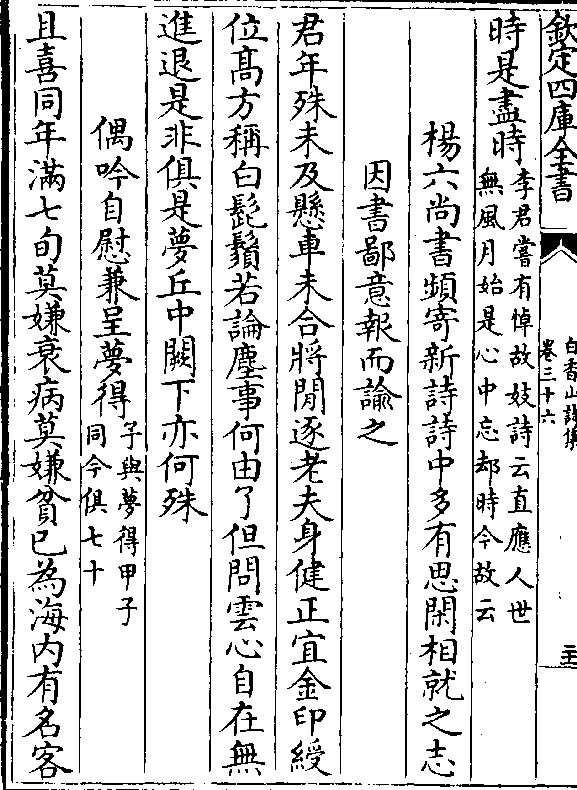 欽定四庫全書
白香山詩集
卷三十六
時是盡時李君嘗有悼故妓詩云直應人世
無風月始是心中忘却時今故云
楊六尚書頻寄新詩詩中多有思閑相就之志
因書鄙意報而諭之
君年殊未及懸車未合將閒逐老夫身健正宜金印綬
位髙方稱白髭鬚若論塵事何由了但問雲心自在無
進退是非俱是夢丘中闕下亦何殊
偶吟自慰兼呈夢得予與夢得甲子
同今俱七十
且喜同年滿七旬莫嫌衰病莫嫌貧已為海内有名客